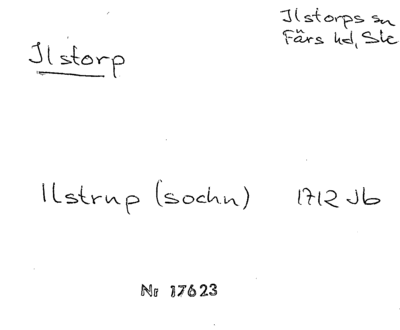 Ilstorp
Ilstorps sn
Färs hd, Sk
Ilstrup (sochn) 1712 Jb
Nr 17623